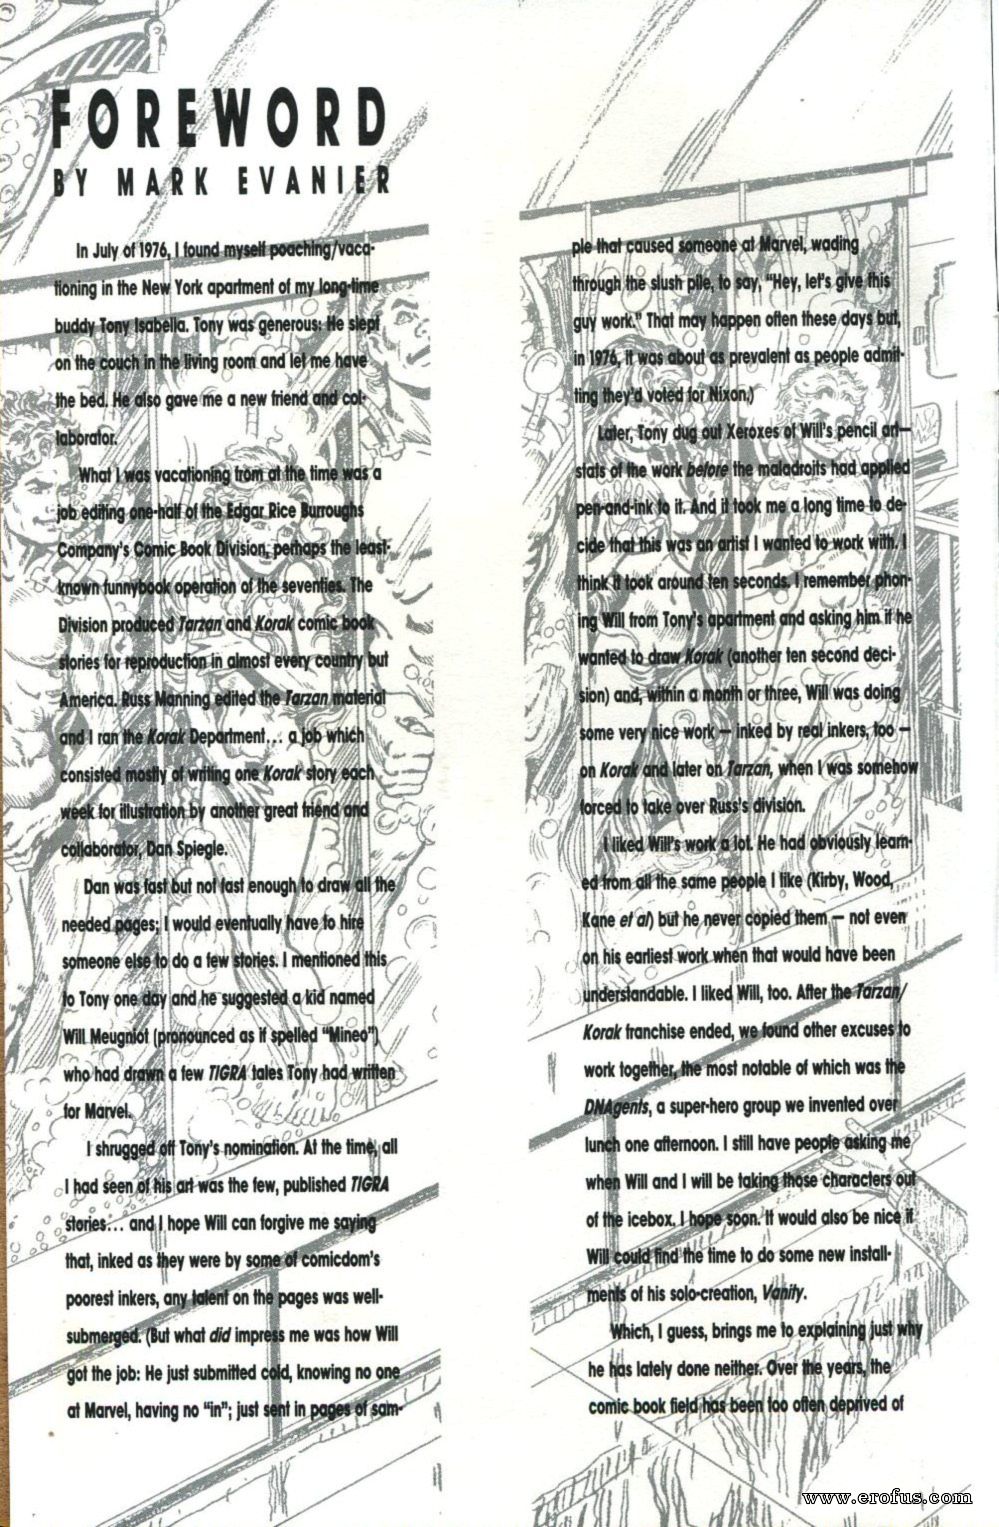 FOREWORD
BY MARK EVANIER
In July of 1976, I found myself poaching/vaca-
tioning in the New York apartment of my long-time
buddy Tony Isabella. Tony was generous: He slept
on the couch in the living room and let me have
the bed. He also gave me a new friend and col-
laborator.
What I was vacationing from at the time was a
job editing one-half of the Edgar Rice Burroughs
Company's Comic Book Division, perhaps the least-
known funnybook operation of the seventies. The
Division produced Tarzan and Korak comic book
stories for reproduction in almost every country but
America. Russ Manning edited the Tarzan material
and I ran the Korak Department... a job which
consisted mostly of writing one Korak story each
week for illustration by another great friend and
collaborator, Dan Spiegle.
Dan was fast but not fast enough to draw all the
needed pages; I would eventually have to hire
someone else to do a few stories. I mentioned this
to Tony one day and he suggested a kid named
Will Meugniot (pronounced as if spelled "Mineo")
who had drawn a few TIGRA tales Tony had written
for Marvel.
I shrugged off Tony's nomination. At the time, all
I had seen of his art was the few, published TIGRA
stories... and I hope Will can forgive me saying
that, inked as they were by some of comicdom's
poorest inkers, any talent on the pages was well-
submerged. (But what did impress me was how Will
got the job: He just submitted cold, knowing no one
at Marvel, having no "in"; just sent in pages of sam-
ple that caused someone at Marvel, wading
through the slush pile, to say, "Hey, let's give this
guy work." That may happen often these days but,
in 1976, it was about as prevalent as people admit-
ting they'd voted for Nixon.)
Later, Tony dug out Xeroxes of Will's pencil art—
stats of the work before the maladroits had applied
pen-and-ink to it. And it took me a long time to de-
cide that this was an artist I wanted to work with. I
think it took around ten seconds. I remember phon-
ing Will from Tony's apartment and asking him if he
wanted to draw Korak (another ten second deci-
sion) and, within a month or three, Will was doing
some very nice work — inked by real inkers, too —
on Korak and later on Tarzan, when I was somehow
forced to take over Russ's division.
I liked Will's work a lot. He had obviously learn-
ed from all the same people I like (Kirby, Wood,
Kane et al) but he never copied them — not even
on his earliest work when that would have been
understandable. I liked Will, too. After the Tarzan/
Korak franchise ended, we found other excuses to
work together, the most notable of which was the
DNAgents, a super-hero group we invented over
lunch one afternoon. I still have people asking me
when Will and I will be taking those characters out
of the icebox. I hope soon. It would also be nice if
Will could find the time to do some new install-
ments of his solo-creation, Vanity.
Which, I guess, brings me to explaining just why
he has lately done neither. Over the years, the
comic book field has been too often deprived of
www.erofus.com